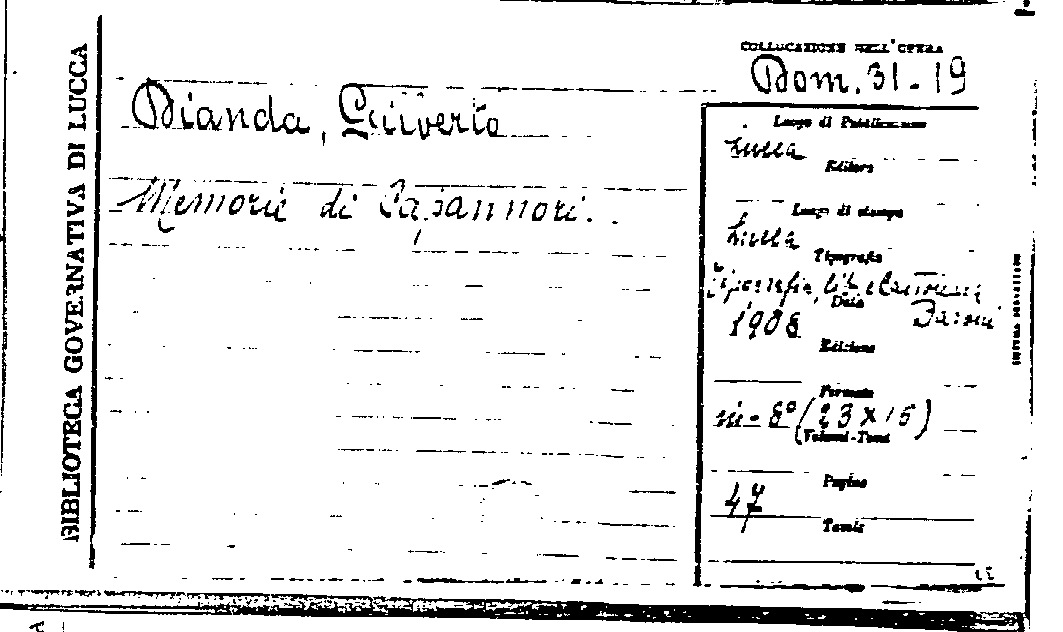 BIBLIOTECA GOVERNATIVA DI LUCCA
COLLOCAZIONE DELL'OPERA
Dom. 31-19
Dianda, Guiverto
Memorie di Capannori.
Luogo di Pubblicazione
Lucca
Editore
Luogo di stampa
Lucca
Tipografia
Tipografia,
Baroni
Data
1908
Edizione
Formato
in-8° (23 x 15)
Volumi-Tomi
Pagine
47
Tavole